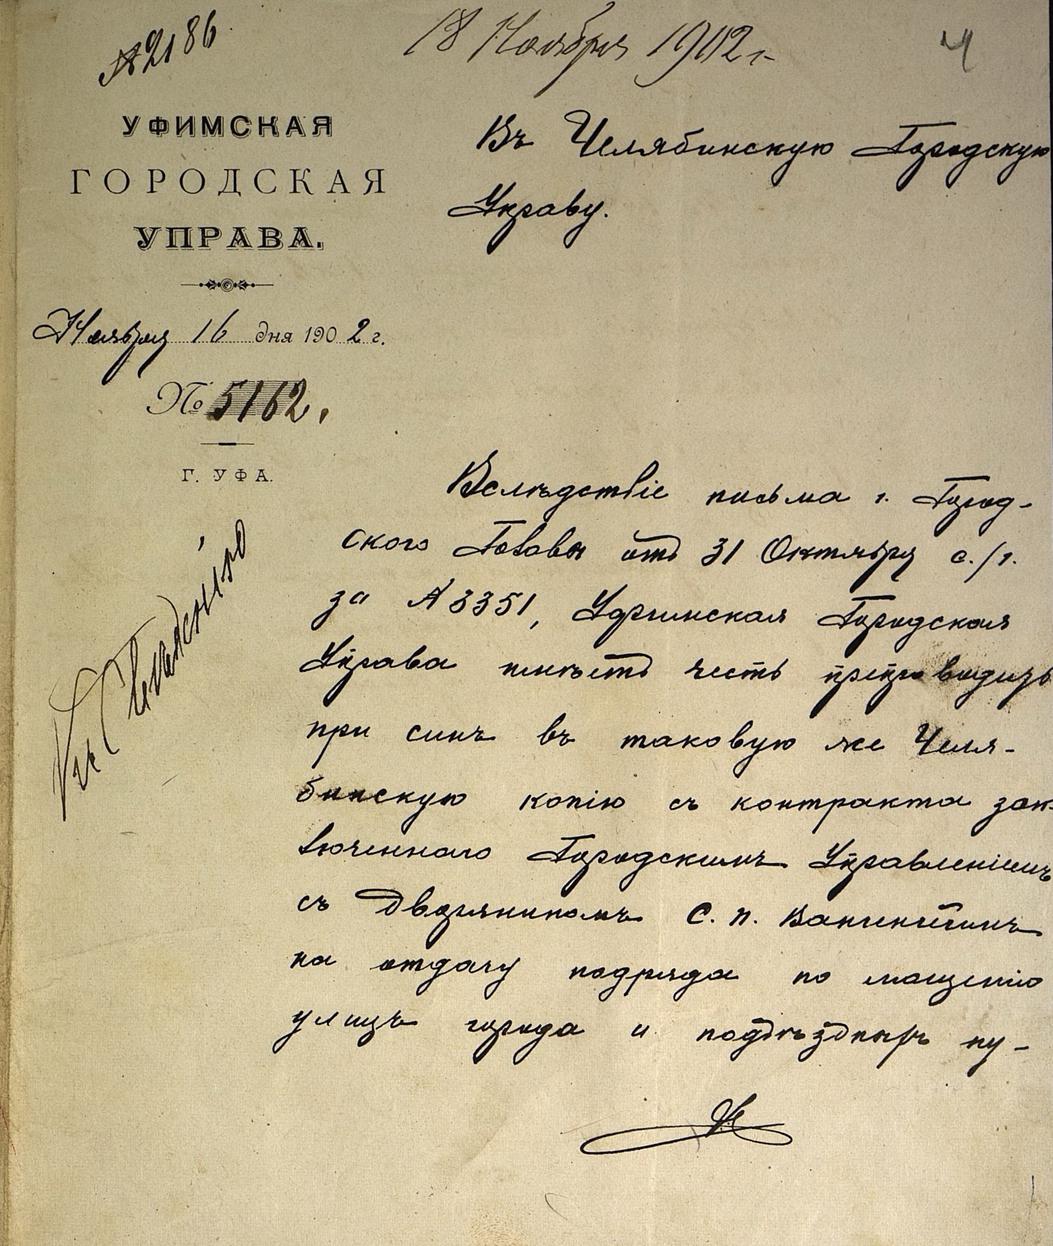 № 2186
18 Ноября 1902 г.
4
УФИМСКАЯ
ГОРОДСКАЯ
УПРАВА.
Ноября 16 дня 1902 г.
№ 5162.
Г. УФА.
Въ Челябинскую Городскую
Управу.
Къ Сведенію
Вслѣдствіе письма г. Город-
ского Головы отъ 31 Октября с./г.
за № 3351, Уфимская Городская
Управа имѣетъ честь препроводить
при семъ въ таковую же Челя-
бинскую копію съ контракта зак-
люченнаго Городскимъ Управленіемъ
съ Дворяниномъ С. П.
на отдачу подряда по мощенію
улицъ города и подъѣздныхъ пу-